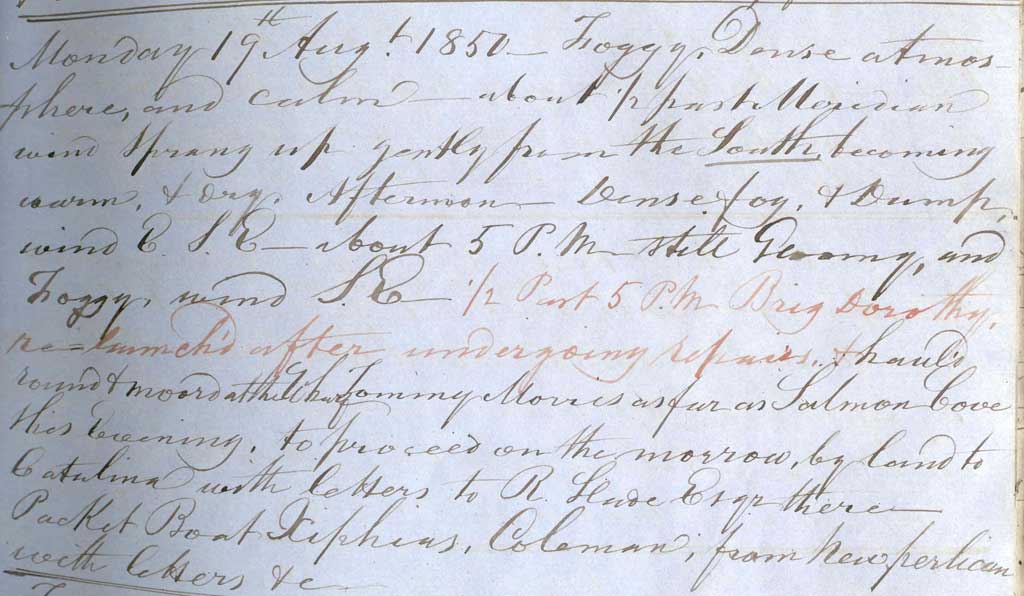 Monday 19th Augt 1850 — Foggy, Dense atmos-
phere, and calm — about ½ past Meridian
wind sprang up gently from the South, becoming
warm, & dry. Afternoon — Dense fog, & Damp,
wind E. S. E — about 5 P.M still Gloomy, and
Foggy, wind S.E ½ Past 5 P.M Brig Dorothy,
re-launch'd after undergoing repairs, & haul'd
round & moord at the Wharf Tommy Morris as far as Salmon Cove
this Evening, to proceed on the morrow, by land to
Catalina with letters to R. Slade Esqr there —
Packet Boat Xiphias, Coleman, from New perlican
with letters &c